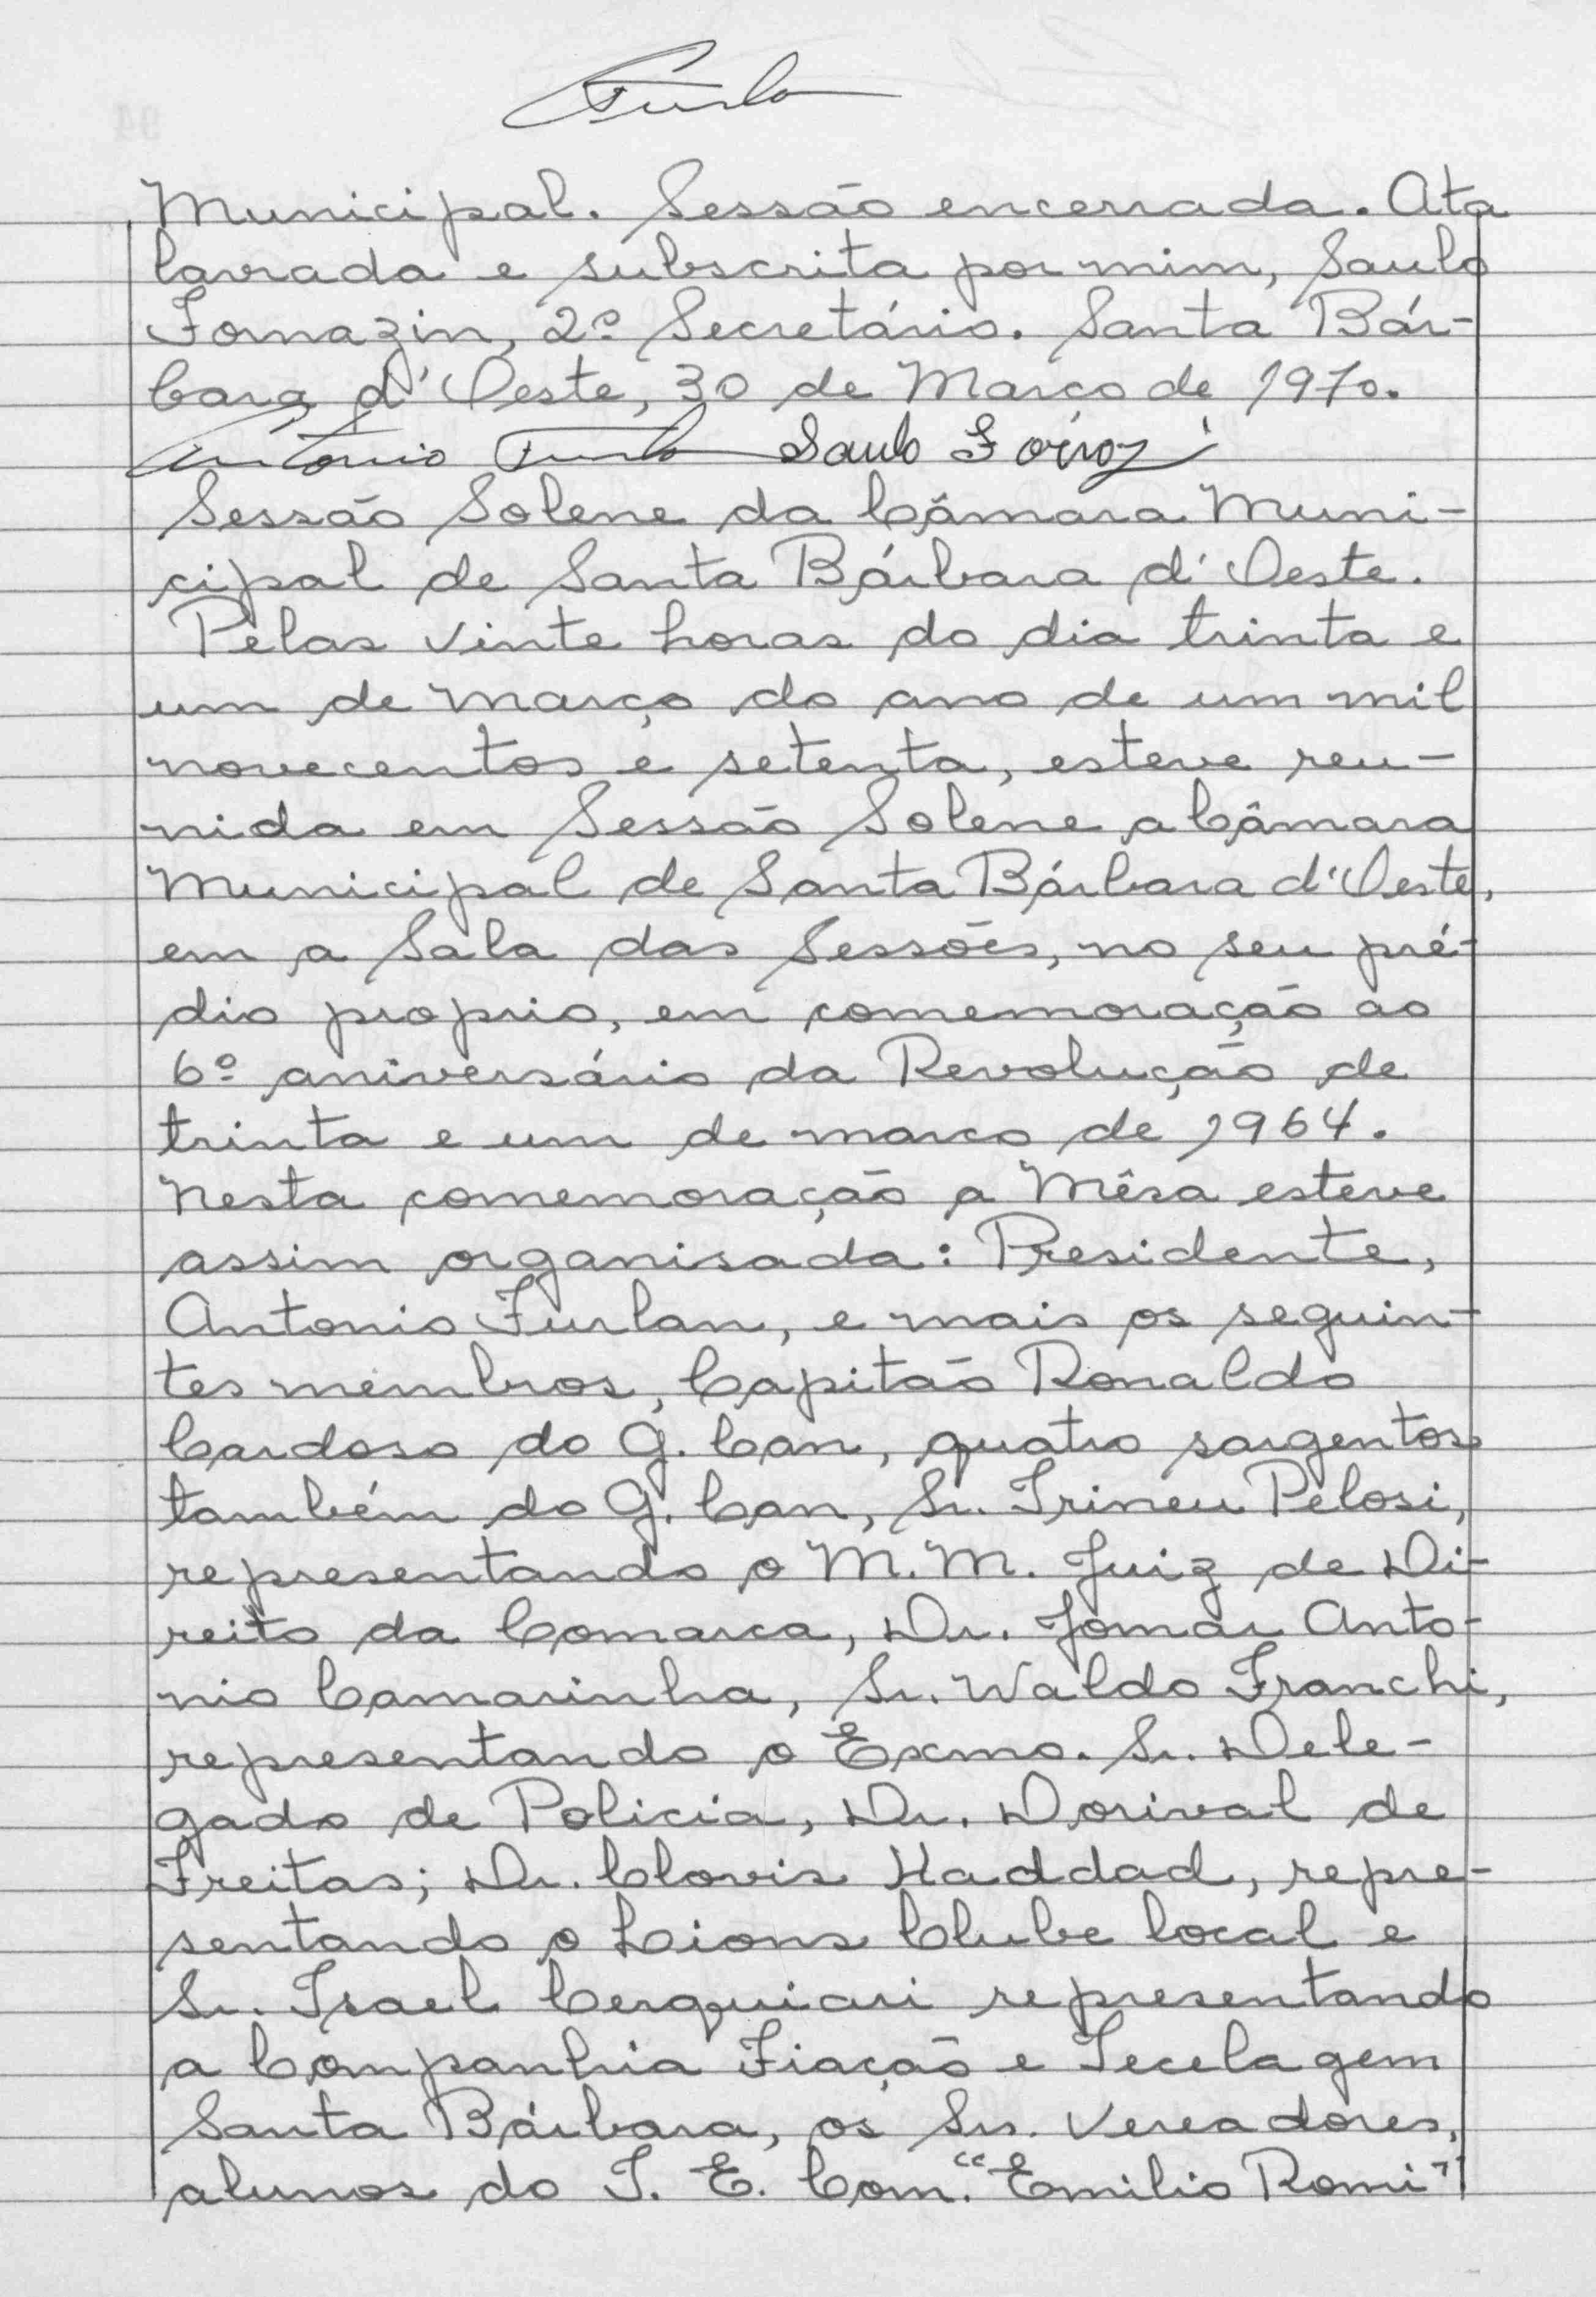 Furlan
Municipal. Sessão encerrada. Ata
lavrada e subscrita por mim, Saulo
Fornazin, 2º Secretário. Santa Bár-
bara d'Oeste, 30 de Março de 1970.
Antonio Furlan Saulo
Sessão Solene da Câmara Muni-
cipal de Santa Bárbara d'Oeste.
Pelas vinte horas do dia trinta e
um de março do ano de um mil
novecentos e setenta, esteve reu-
nida em Sessão Solene a Câmara
Municipal de Santa Bárbara d'Oeste,
em a Sala das Sessões, no seu pré-
dio proprio, em comemoração ao
6º aniversário da Revolução de
trinta e um de marco de 1964.
Nesta comemoração a Mêsa esteve
assim organisada: Presidente,
Antonio Furlan, e mais os seguin-
tes membros, Capitão Ronaldo
Cardoso do G. Can, quatro sargentos
também do G. Can, Sr. Irineu Pelosi,
representando o M. M. Juiz de Di-
reito da Comarca, Dr. Jomar Anto-
nio Camarinha, Sr. Waldo Franchi,
representando o Exmo. Sr. Dele-
gado de Policia, Dr. Dorival de
Freitas; Dr. Clovis Haddad, repre-
sentando o Lions Clube local e
Sr. Isael Cerquiari representando
a Companhia Fiação e Tecelagem
Santa Bárbara, os Srs. Vereadores,
alunos do I. E. Com. "Emilio Romi"